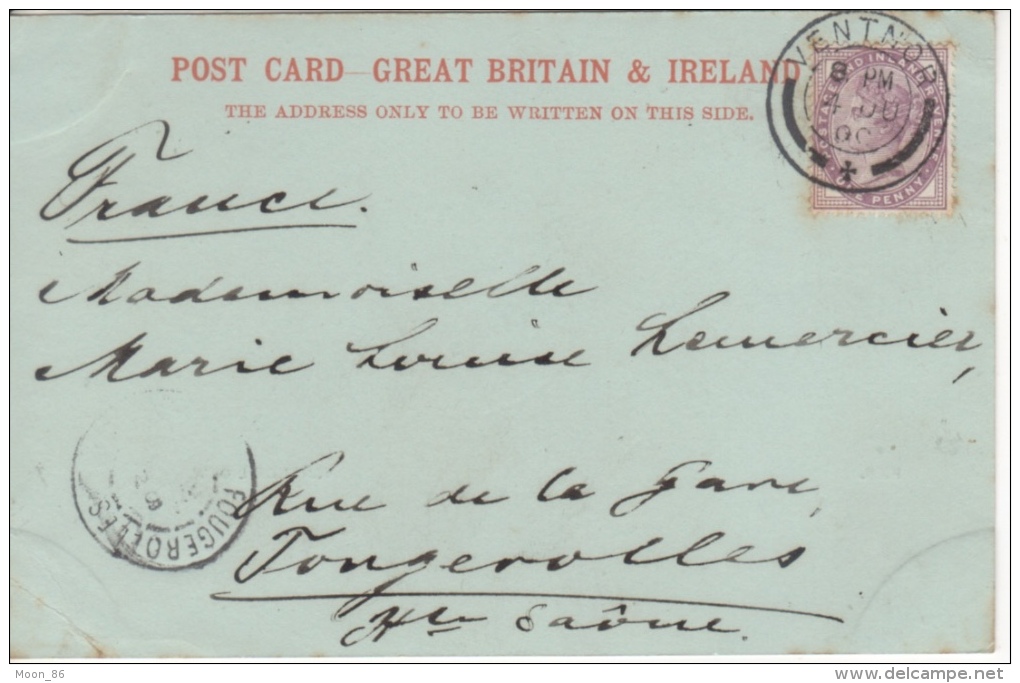 POST CARD–GREAT BRITAIN & IRELAND
THE ADDRESS ONLY TO BE WRITTEN ON THIS SIDE.
VENTNOR
8 PM
4 JU
PENNY
France.
Mademoiselle
Marie Louise Lemercier,
Rue de la Gare,
Fougerolles
Hte Saône.
FOUGEROLLES
Moon_86
delcampe.net